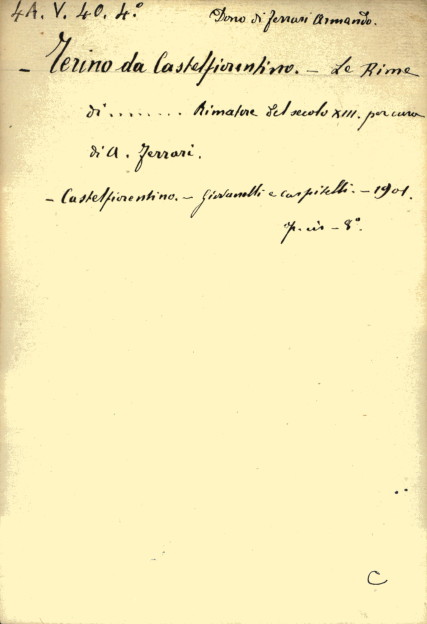 4A. V. 40. 4.º
Dono di Ferrari Armando.
- Terino da Castelfiorentino. - Le Rime
di ........ Rimatore del secolo XIII. per cura
di A. Ferrari.
- Castelfiorentino. - Giovannelli e Carpitelli. - 1901.
- 8º
C